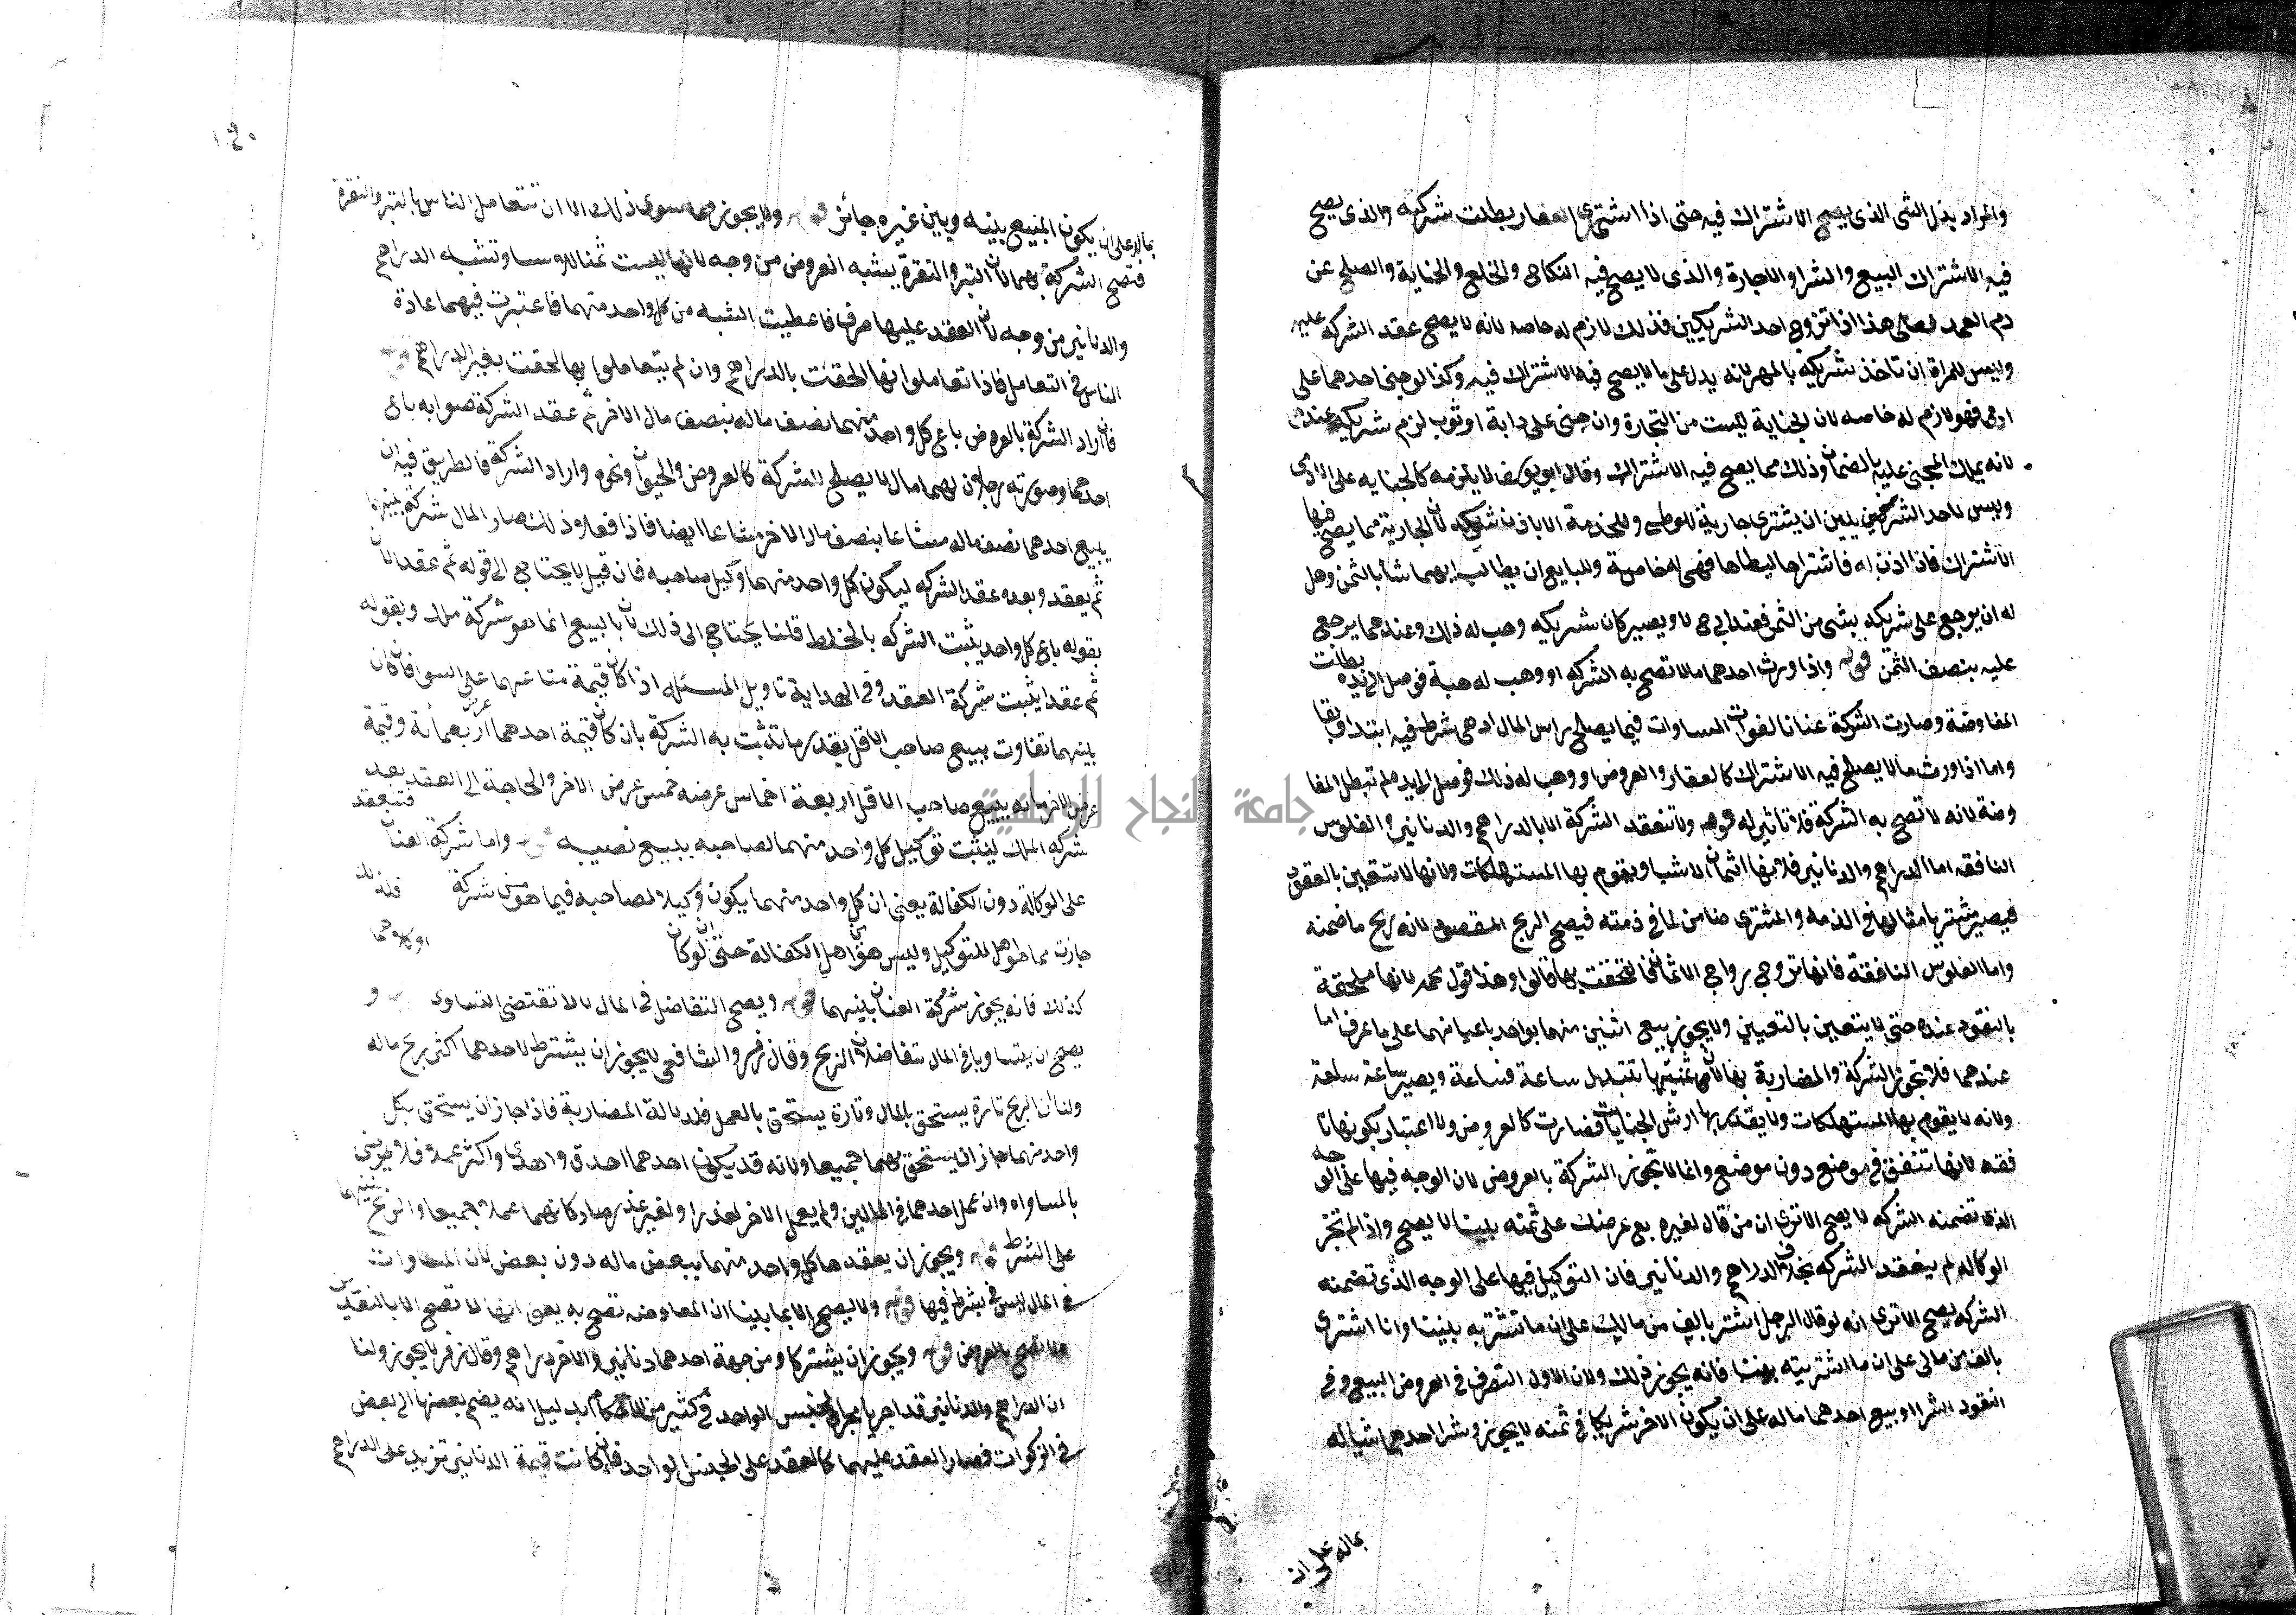 والمراد بذل الشى الذى يصح الاشتراك فيه حتى اذا اشترى العقار بطلت شركته والذى يصح
فيه الاشتراك البيع والشرا والاجارة والذى لا يصح فيه النكاح والخلع والجناية والصلح عن
دم العمد فعلى هذا اذا تزوج احد الشريكين فذلك لازم له خاصه لانه لا يصح عقد الشركه عليه
وليس للمراة ان تاخذ شريكه بالمهر لانه بدل على ما لا يصح فيه الاشتراك فيه وكذا لو جنى احدهما على
ادمى فهو لازم له خاصه لان الجناية ليست من التجارة وان جنى على دابة او ثوب لزم شريكه عندهما
لانه يملك المجنى عليه بالضمان وذلك مما يصح فيه الاشتراك وقال ابو يوسف لا يلزمه كالجنايه على الادمى
وليس لاحد الشريكين ان يشترى جارية للوطى وللخدمة الا باذن شريكه لان الجارية مما يصح فيها
الاشتراك فاذا اذن له فاشتراها ليطاها فهى له خاصة وللبايع ان يطالب ايهما شا بالثمن وهل
له ان يرجع على شريكه بشى من الثمن فعند ابى ح لا ويصير كان شريكه وهب له ذلك وعندهما يرجع
عليه بنصف الثمن قوله واذا ورث احدهما مالا تصح به الشركه او وهب له هبة فوصل الى يده بطلت
المفاوضة وصارت الشركة عنانا لفوات المساوات فيما يصلح راس المال اذ هى شرط فيه ابتدا وبقا
واما اذا ورث ما لا يصلح فيه الاشتراك كالعقار والعروض او وهب له ذلك فوصل اليه لم تبطل المفا
وضة لانه لا تصح به الشركة فلا تاثير له قوله ولا تنعقد الشركة الا بالدراهم والدنانير والفلوس
النافقه اما الدراهم والدنانير فلانها اثمان الاشيا ويقوم بها المستهلكات ولانها لا تتعين بالعقود
فيصير مشتريا مثالها فى الذمه والمشترى ضامن لما فى ذمته فيصح الربح المقصود لانه ربح ما ضمنه
واما الفلوس النافقة فانها تروج رواج الاثمان فالتحقت بها قالوا وهذا قول محمد لانها ملحقة
بالنقود عنده حتى لا يتعين بالتعيين ولا يجوز بيع اثنين منهما بواحد باعيانهما على ما عرف اما
عندهما فلا تجوز الشركة والمضاربة بها لان ثمنيتها تتبدل ساعة فساعة ويصير ساعة سلعة
ولانه لا يقوم بها المستهلكات ولا يقدر بها ارش الجنايات فصارت كالعروض ولا اعتبار بكونها نا
فقه لانها تنفق فى موضع دون موضع وانما لا تجوز الشركة بالعروض لان الوجه فيها على الوجه
الذى تضمنه الشركه لا يصح الا ترى ان من قال لغيره بع عرضك على ثمنه بيننا لا يصح واذا لم تجز
الوكاله لم ينعقد الشركه بخلاف الدراهم والدنانير فان التوكيل فيها على الوجه الذى تضمنه
الشركه يصح الا ترى انه لو قال الرجل اشتر بالف من مالك على ان ما تشتريه بيننا وانا اشترى
بالف من مالى على ان ما اشتريته بيننا فانه يجوز ذلك ولان الاول التصرف فى العروض البيع وفى
النقود الشرا وبيع احدهما ماله على ان يكون الاخر شريكا فى ثمنه لا يجوز وشرا احدهما شيا له
بماله على ان
بماله على ان يكون المبيع بينه وبين غيره جائز قوله ولا يجوز بما سوى ذلك الا ان تتعامل الناس بالتبر والنقرة
فتصح الشركة بهما لان التبر والنقرة يشبه العروض من وجه لانها ليست ثمنا للاوسا وتشبه الدراهم
والدنانير من وجه لان العقد عليها صرف فاعطيت الشبه من كل واحد منهما فاعتبرت فيهما عادة
الناس فى التعامل فاذا تعاملوا بها الحقت بالدراهم وان لم يتعاملوا بها لحقت بغير الدراهم قوله
فان اراد الشركة بالعروض باع كل واحد منهما نصف ماله بنصف مال الاخر ثم عقد الشركة صوابه باع
احدهما وصورته رجلان لهما مال لا يصلح للشركة كالعروض والحيوان ونحوه واراد الشركة فالطريق فيه ان
يبيع احدهما نصف ماله مشاعا بنصف مال الاخر مشاعا ايضا فاذا فعلا ذلك صار المال شركة بينهما
ثم يعقد وبعده عقد الشركه ليكون كل واحد منهما وكيل صاحبه فان قيل لا يحتاج الى قوله ثم عقد الان
بقوله باع كل واحد يثبت الشركه بالخلط قلنا يحتاج الى ذلك لان بالبيع انما هو شركة ملك وبقوله
ثم عقد يثبت شركة العقد وفى الهداية تاويل المسئله اذا كان قيمة متاعهما على السوا فان كان
بينهما تفاوت يبيع صاحب الاقل بقدر ما تثبت به الشركة بان كان قيمة عرض احدهما اربعمائة وقيمة
عرض الاخر مائه يبيع صاحب الاقل اربعة اخماس عرضه خمس عرض الاخر والحاجة الى العقد بعد
شركه الملك ليثبت توكيل كل واحد منهما لصاحبه ببيع نصيبه قوله واما شركة العنان فتنعقد
على الوكالة دون الكفالة يعنى ان كل واحد منهما يكون وكيلا لصاحبه فيما هو من شركة
جازت مما هو اهل للتوكيل وليس هو من اهل الكفالة حتى ان لو كان
كذلك فانه يجوز شركة العنان بينهما قوله ويصح التفاضل فى المال لانه لا تقتضى التساوى و
يصح ان يتساويا فى المال ويتفاضلا فى الربح وقال زفر والشافعى لا يجوز ان يشترط لاحدهما اكثر ربح ماله
ولنا ان الربح تارة يستحق بالمال وتارة يستحق بالعمل بدلالة المضاربة فاذا جاز ان يستحق بكل
واحد منهما جاز ان يستحق بهما جميعا ولانه قد يكون احدهما احذق واهدى واكثر عملا فلا يرضى
بالمساواه وان عمل احدهما فى المالين ولم يعمل الاخر لعذر او لغير عذر صار كانهما عملا جميعا والربح بينهما
على الشرط قوله ويجوز ان يعقدها كل واحد منهما ببعض ماله دون بعض لان المساوات
فى المال ليس بشرط فيها قوله ولا يصح الا بما بينا ان المفاوضه تصح به يعنى انها لا تصح الا بالنقدين
ولا تصح بالعروض قوله ويجوز ان يشتركا ومن جهة احدهما دنانير والاخر دراهم وقال زفر لا يجوز ولنا
ان الدراهم والدنانير قد اجريا مجرى الجنس الواحد فى كثير من الاحكام بدليل انه يضم بعضها الى بعض
فى الزكوات فصار العقد عليهما كالعقد على الجنس الواحد فان كانت قيمة الدنانير تزيد على الدراهم
جامعة النجاح الوطنية